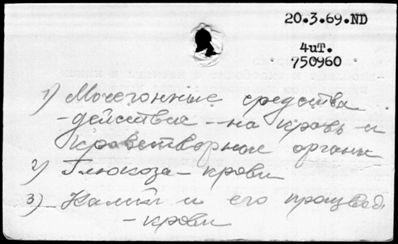 20.3.69.ND
4uT.
750960
1) Мочегонные средства
- действие - на кровь и
кроветворные органы
2) Глюкоза - крови
3) Калий и его производ.
- крови